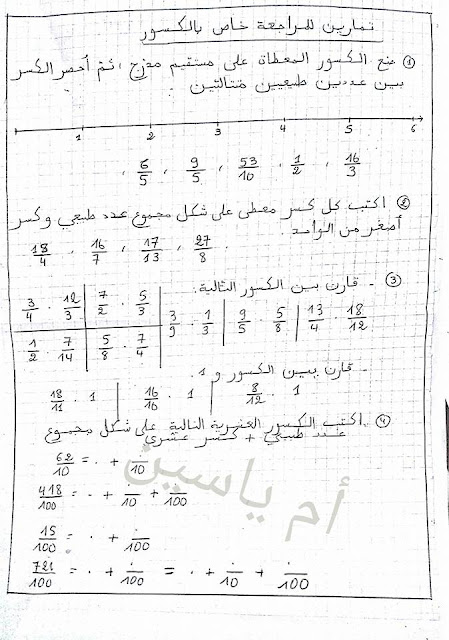 تمارين للمراجعة خاص بالكسور
① ضع الكسور المعطاة على مستقيم مدرج ، ثم أحصر الكسر
بين عددين طبيعيين متتاليين .
1 2 3 4 5 6
16/3 ، 1/2 ، 53/10 ، 9/5 ، 6/5 ،
② اكتب كل كسر معطى على شكل مجموع عدد طبيعي وكسر
أصغر من الواحد
27/8 ، 17/13 ، 16/7 ، 18/4
③ - قارن بين الكسور التالية.
3/4 . 12/3 | 7/2 . 5/3 | 3/9 . 1/3 | 9/5 . 5/8 | 13/4 . 18/12
1/2 . 7/14 | 5/8 . 7/4
- قارن بين الكسور و 1.
18/11 . 1 | 16/10 . 1 | 8/12 . 1
④ اكتب الكسور العشرية التالية على شكل مجموع
عدد طبيعي + كسر عشري
62/10 = . + ./10
418/100 = . + ./10 + ./100
15/100 = . + ./100
721/100 = . + ./100 = . + ./10 + ./100
أم ياسين